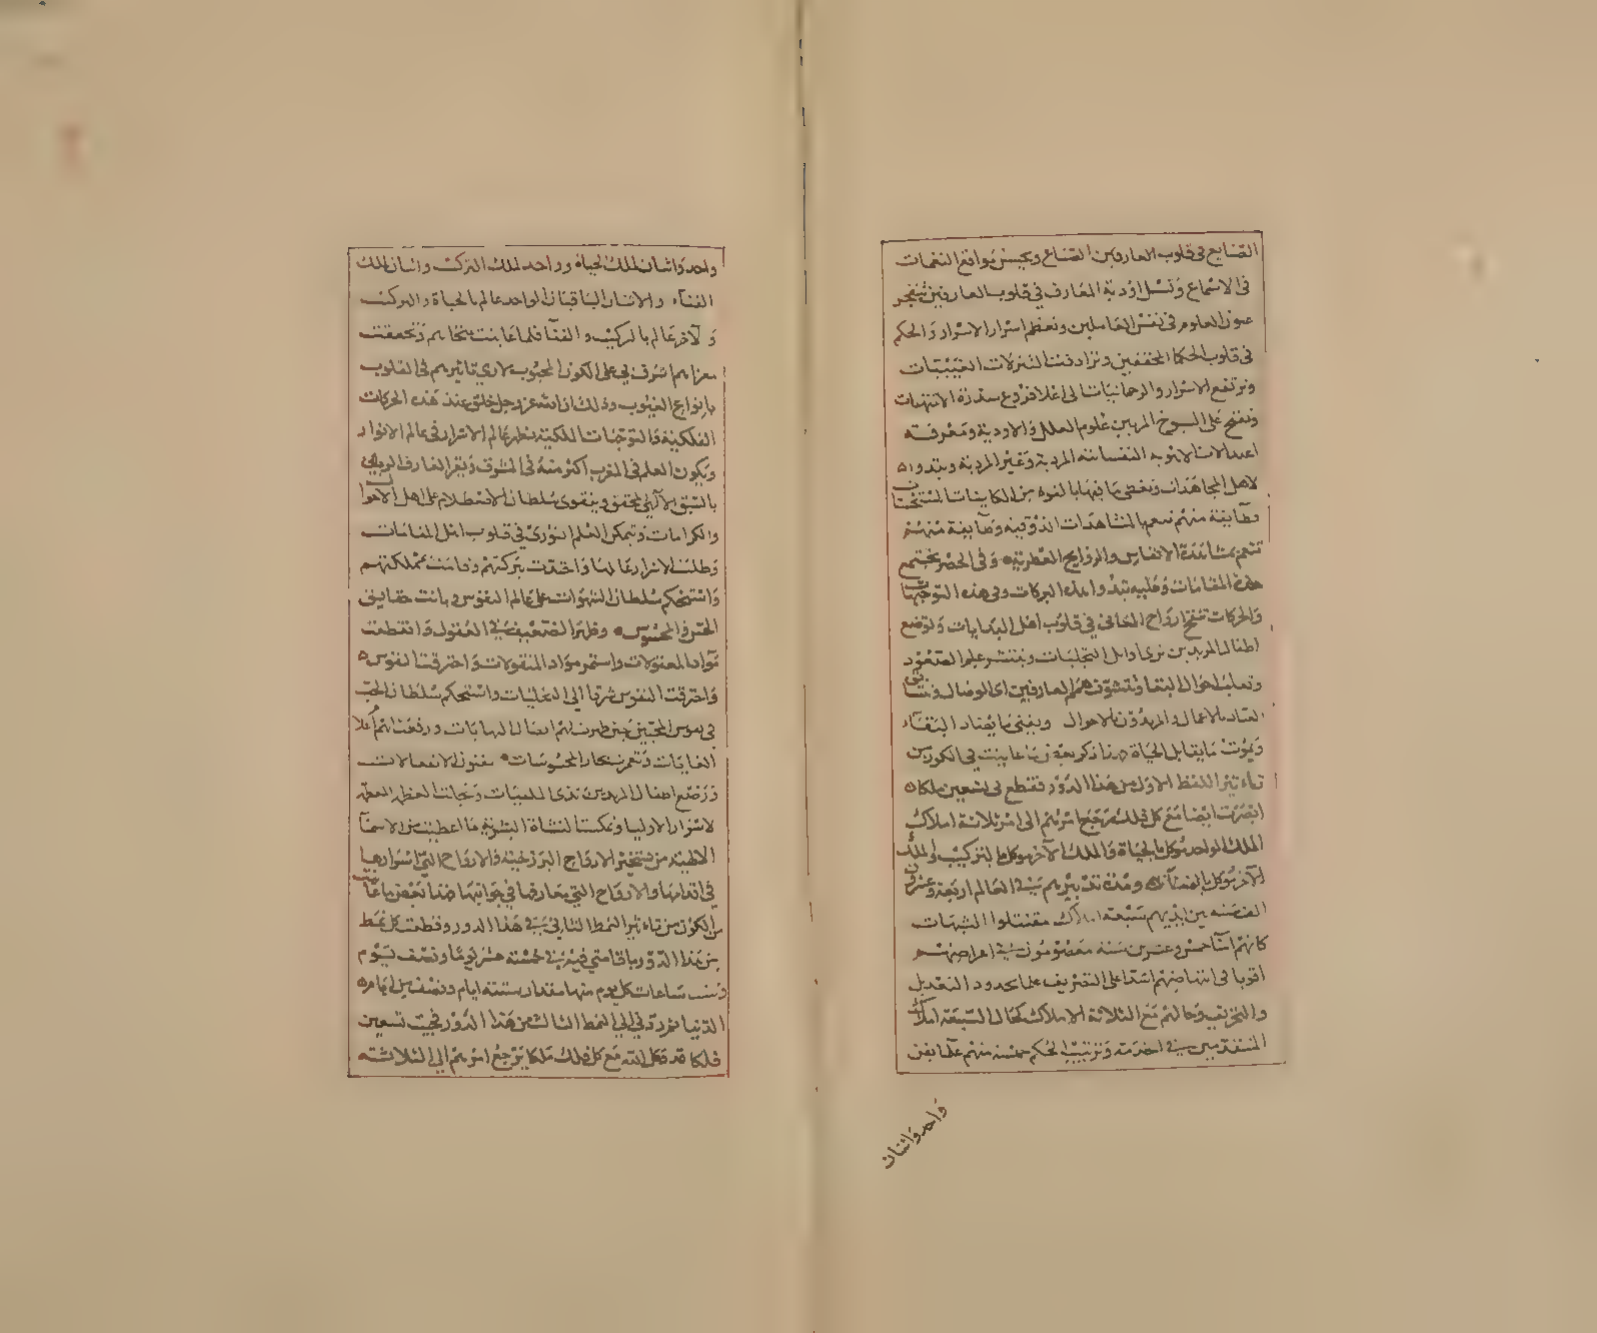 الصنايع في قلوب العارفين الصناع ويحسن مواقع النغمات
في الاسماع وتسل اودية المعارف في قلوب العارفين تنفجر
عيون العلوم في نفس العاملين وتعظم اسرار الاسرار والحكم
في قلوب الحكما المحققين وترادفت التنزلات الغيبيات
وترتفع الاسرار والرحمانيات الى اعلا فروع سدرة الانتهيات
وتفتح على علوم العلل والاودية ومعرفة
النفسانية المردية وغير المردية وتبدوا
لاهل المجاهدات وتعطى ما فيها بالقوة من الكاينات
وطايفة منهم تنعم بالمشاهدات الذوقية وطايفة منهم
تنعم بمشاهدة الانفاس والروايح العطرية وفي الحضر يجتمع
هذه المقامات وتبدوا هذه البركات وفي هذه التوجهات
والحركات تنفخ ارواح المعاني في قلوب اهل البدايات وترضع
اطفال المريدين ثدي اوايل التجليات وينتشر علم الصعود
احوال البقا وتتشوف همم العارفين الى الوصال
الاعمال والمريدون الاحوال ويفنى ما يضاد البقاء
ويموت ما يقابل الحياة هذا ذكر بعض ما عاينت في الكون من
تاثير النمط الاول من هذا الدور فتقطع في تسعين ملكا
ابصرت ايضا مع كل فلك مرجع امرهم الى امر ثلاثة املاك
الملك الواحد موكل بالحياة والملك الآخر موكل بالتركيب والملك
الآخر موكل بالفناء ومدة تدبيرهم في العالم اربعة وعشرون
الف سنة بين ايديهم سبعة املاك مقتبلوا الشبات
كانهم ابنا خمس وعشرين سنة معصومون في اغراضهم
اقويا في انتهاضهم اشدا على التصريف على حدود التعديل
والتحريف وحالهم مع الثلاثة الاملاك كحال السبعة املاك
المتقدمين في الخدمة وترتيب الحكم خمسة منهم على يقين
واحد واثنان
واحد واثنان لملك الحياة وواحد لملك التركيب واثنان لملك
الفناء والاثنان الباقيان الواحد عالم بالحياة والتركيب
والآخر عالم بالتركيب والفنا فلما عاينت وتحققت
اشرف بي على الكون المحبوب لاري تاثيرهم في القلوب
بانواع الغيوب وذلك ان الله عز وجل خلق عند هذه الحركات
الفلكية والتوجهات الملكية عالم الاسرار في عالم الانوار
ويكون العلم في المغرب اكثر منه في المشرق العارف الرباني
بالسبق الآلي لمحقق ويتقوى سلطان الاصطلام على اهل الاهوا
والكرامات وتمكن العلم النوري في قلوب اهل المقامات
وطلب الاسرار عالمها واتحدت بتركتهم وقامت بمملكتهم
واستحكم سلطان الشهوات على عالم النفوس وبانت حقايق
الحس والمحسوس وظهر التضعيف في العقول وانقطعت
مواد المعقولات واستمر مواد المنقولات واحترقت النفوس
واحترقت النفوس شوقا الى التجليات واستحكم سلطان الحب
في نفوس المحبين حين ظهرت لهم النهايات ورفعت لهم اعلا
الغايات وتتمر بحار المحسوسات بفنون الانفعالات
وترضع اطفال المريدين ثدي الغيبات
لاسرار الاوليا لنشاة البشرية ما اعطيت من الاسما
الالهية من الارواح البرزخية والارواح التي اسرارها
في اقدامها والارواح التي معارفها في جوانبها هذا بعض ما عاينت
من الكون من تاثير النمط الثاني في هذا الدور وقطعت كل نمط
من هذا الدور باقامتي فيه في خمسة عشر يوما ونصف يوم
وست ساعات كل يوم منها مقدار ستة ايام ونصف من ايام
الدنيا ثم رد في الى النمط الثالث من هذا الدور فجيت تسعين
فلكا قد وكل الله مع كل فلك ملكا يرجع امرهم الى الثلاثة